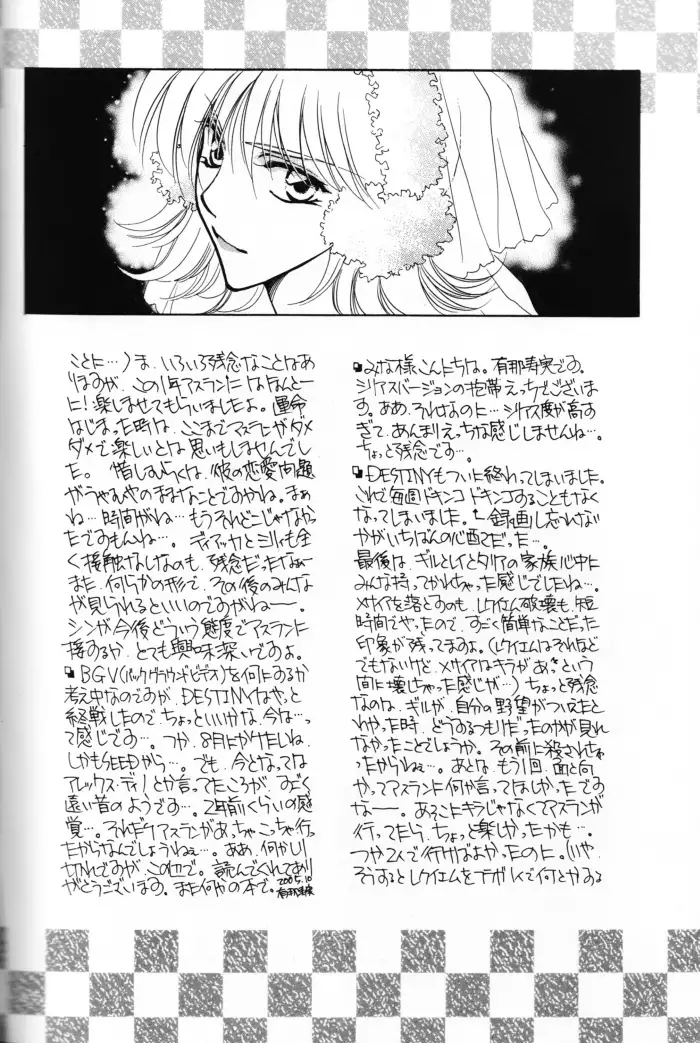 ❏みな様こんにちは。有那寿実です。
シリアスバージョンの抱帯えっちでございま
す。ああ、それなのに…シリアス度が高す
ぎて、あんまりえっちな感じしませんね…。
ちょっと残念です…。
❏DESTINYもついに終わってしまいました。
これで毎週ドキンコドキンコすることもなく
なってしまいました。←録画し忘れない
かがいちばんの心配でだった…。
最後は、ギルとレイとタリアの家族心中に
みんな持ってかれちゃった感じでしたね…。
メサイアを落とすのも、レクイエム破壊も、短
時間でやったので、すごく簡単なことだった
印象が残ってますよ。(レクイエムはそれほど
でもないけど、メサイアはキラが、あっという
間に壊しちゃった感じが…)ちょっと残念
なのは、ギルが、自分の野望がついえたと
わかった時、どうするつもりだったのかが見れ
なかったことでしょうか。その前に殺されちゃ
ったからねぇ…。あとは、もう1回、面と向
かってアスランに何か言ってほしかったです
なー。あそこにキラじゃなくてアスランが
行ってたら、ちょっと楽しかったかも…。
つか2人で行けばよかったのに。(いや、
そうするとレクイエムをフラガ1人で何とかする
ことに…)ま、いろいろ残念なことはあ
りますが、この1年アスランにはなんとー
に!楽しませてもらいましたよ。運命
はじまった時は、ここまでアスランがダメ
ダメで楽しいとは思いもしませんでし
た。惜しむらくは、彼の恋愛問題
がうやむやのままなことですかね。まぁ
ね…時間がね…もうそれどこじゃなかっ
たですもんね…。ディアッカとミリィも全
く接触なしなのも、残念だったなぁー
また、何らかの形で、その後のみんな
が見られるといいのですがねー。
シンが今後どういう態度でアスランに
接するか、とても興味深いですよ。
❏BGV(バックグラウンドビデオ)を何にするか
考え中なのですが、DESTINYはやっと
終戦したのでちょっといいかな、今は…っ
て感じです…。つか、8月にかけたしね、
しかもSEEDから…。でも、今となっては
アレックス・ディノとか言ってたころが、すごく
遠い昔のようです…。2年前くらいの感
覚…。それだけアスランがあっちゃこっちゃ行っ
たからなんでしょうねぇ…。ああ、何か尻
切れですが、この辺で。読んでくれてあり
がとうございます。また何かの本で。2005.10
有那寿実